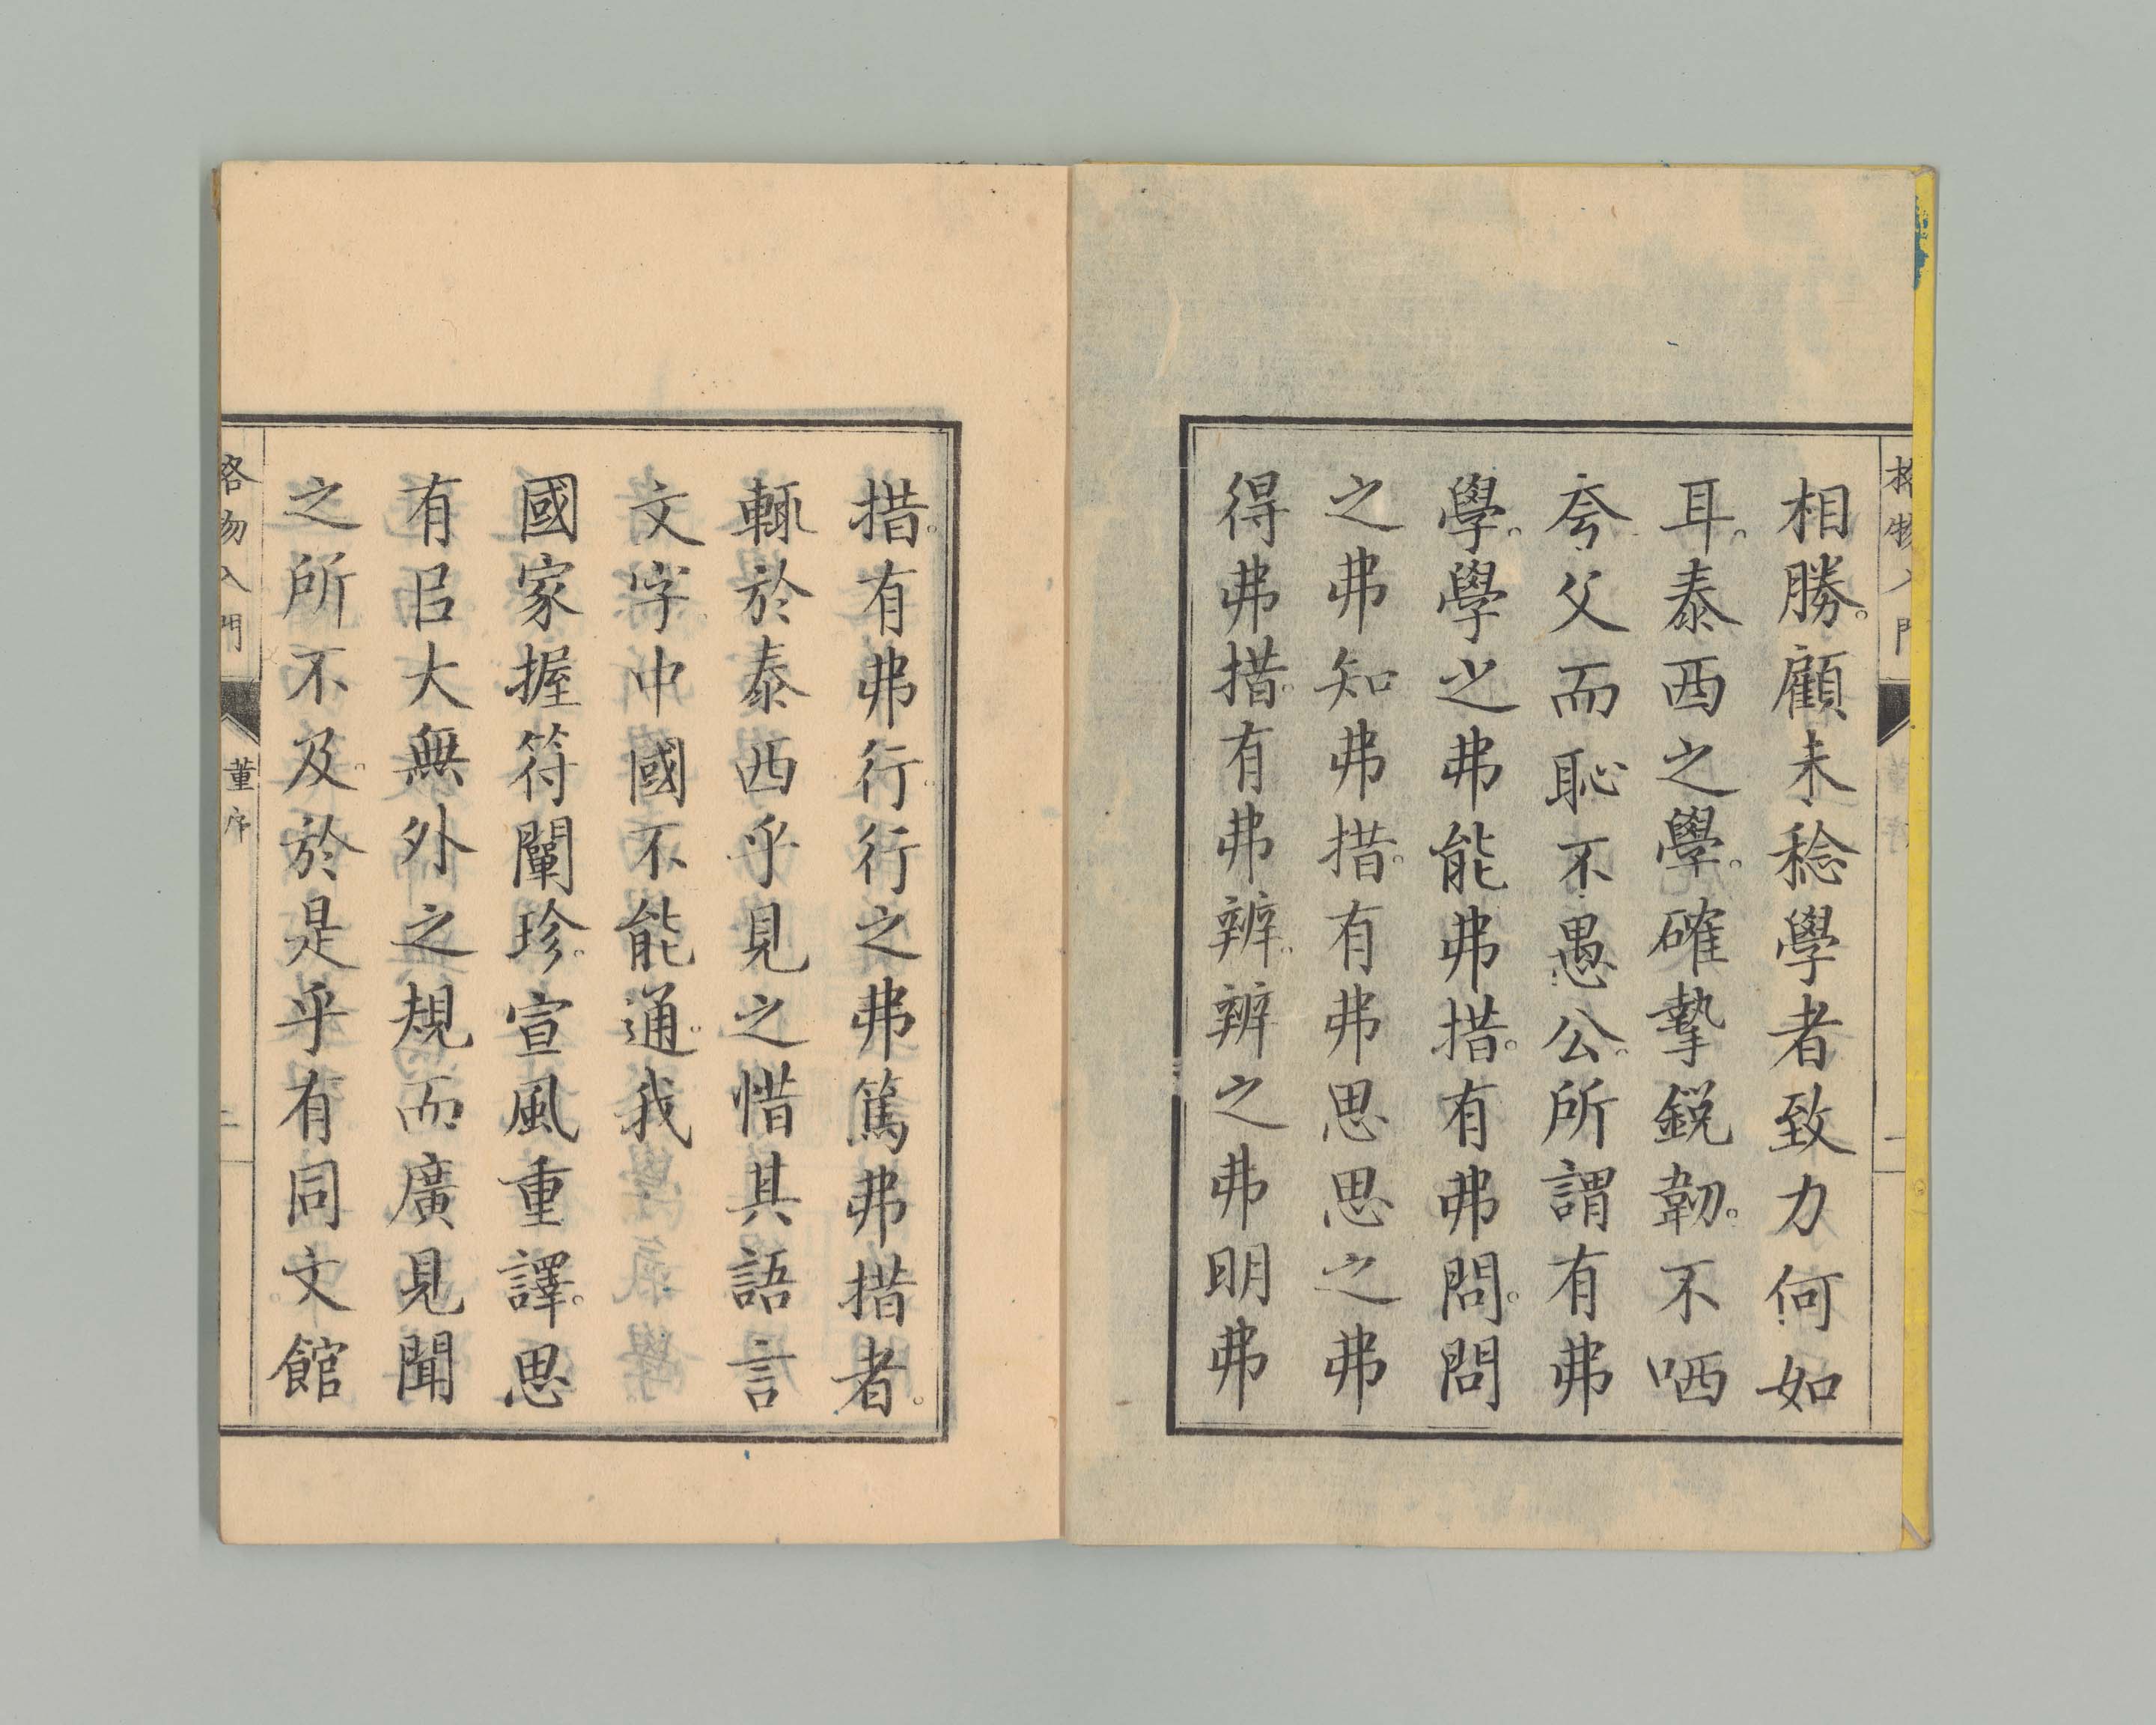 格物入門
一
相勝。顧未稔學者致力何如
耳。泰西之學。確摯鋭韌。不哂
夸父而恥不愚公。所謂有弗
學。學之弗能弗措。有弗問。問
之弗知弗措。有弗思思之弗
得弗措。有弗辨。辨之弗明弗
措。有弗行。行之弗篤弗措者。
輒於泰西乎見之惜其語言
文字。中國不能通。我
國家握符闡珍。宣風重譯。思
有㠯大無外之規而廣見聞
之所不及。於是乎有同文館
格物入門
董序
二